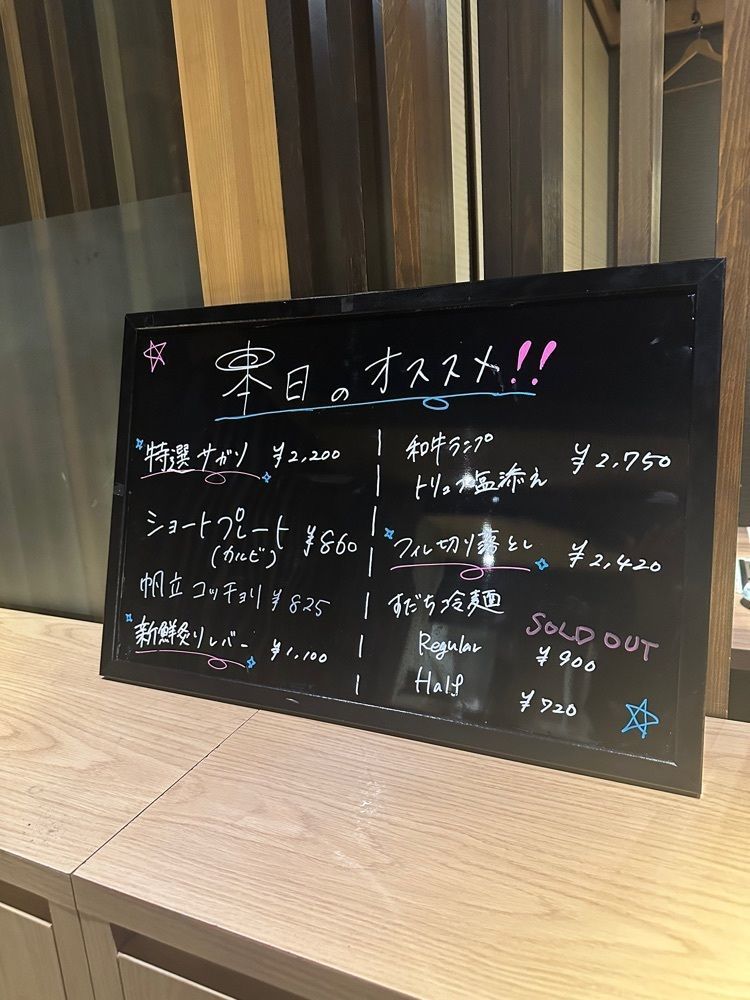 本日のオススメ!!
特選サガリ ¥2,200
ショートプレート ¥860
(カルビ)
帆立コッチョリ ¥825
新鮮炙りレバー ¥1,100
和牛ランプ
トリュフ塩添え ¥2,750
フィレ切り落とし ¥2,420
すだち冷麺
SOLD OUT
Regular ¥900
Half ¥720